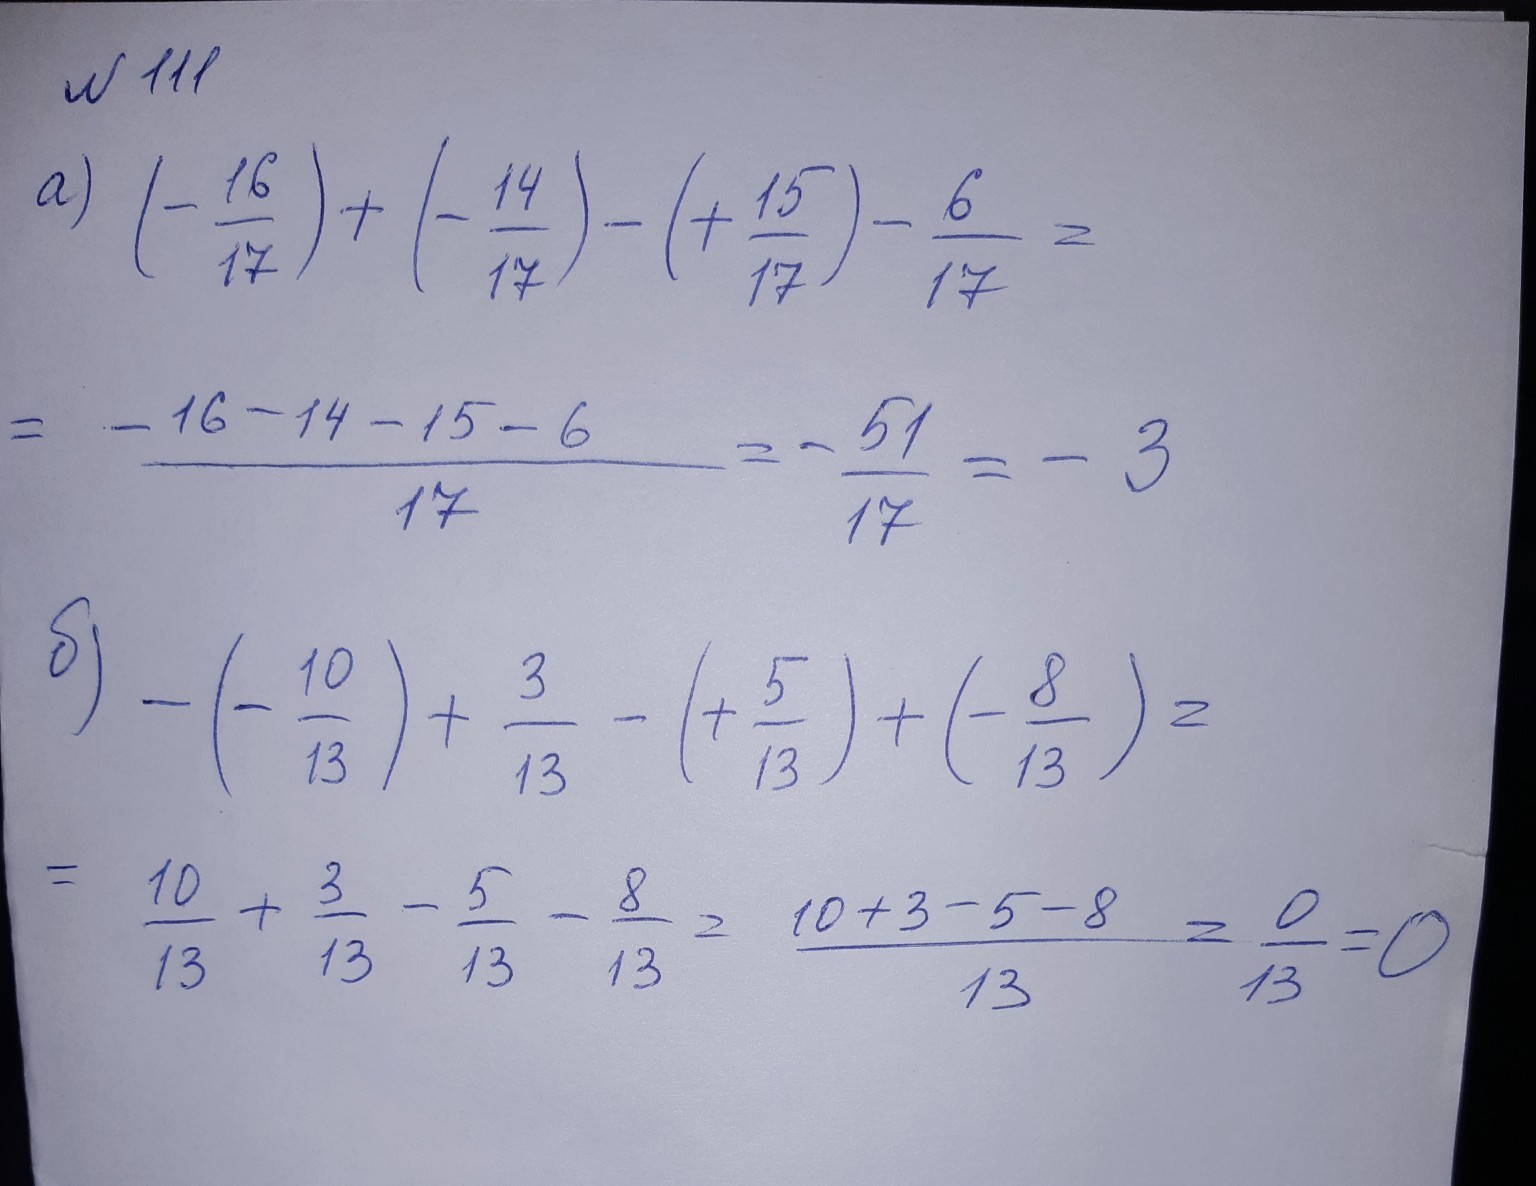 № 111
а) (- 16/17) + (- 14/17) - (+ 15/17) - 6/17 =
= (-16-14-15-6)/17 = - 51/17 = - 3
б) - (- 10/13) + 3/13 - (+ 5/13) + (- 8/13) =
= 10/13 + 3/13 - 5/13 - 8/13 = (10+3-5-8)/13 = 0/13 = 0